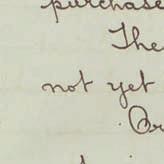 purchase
The
not yet
Or